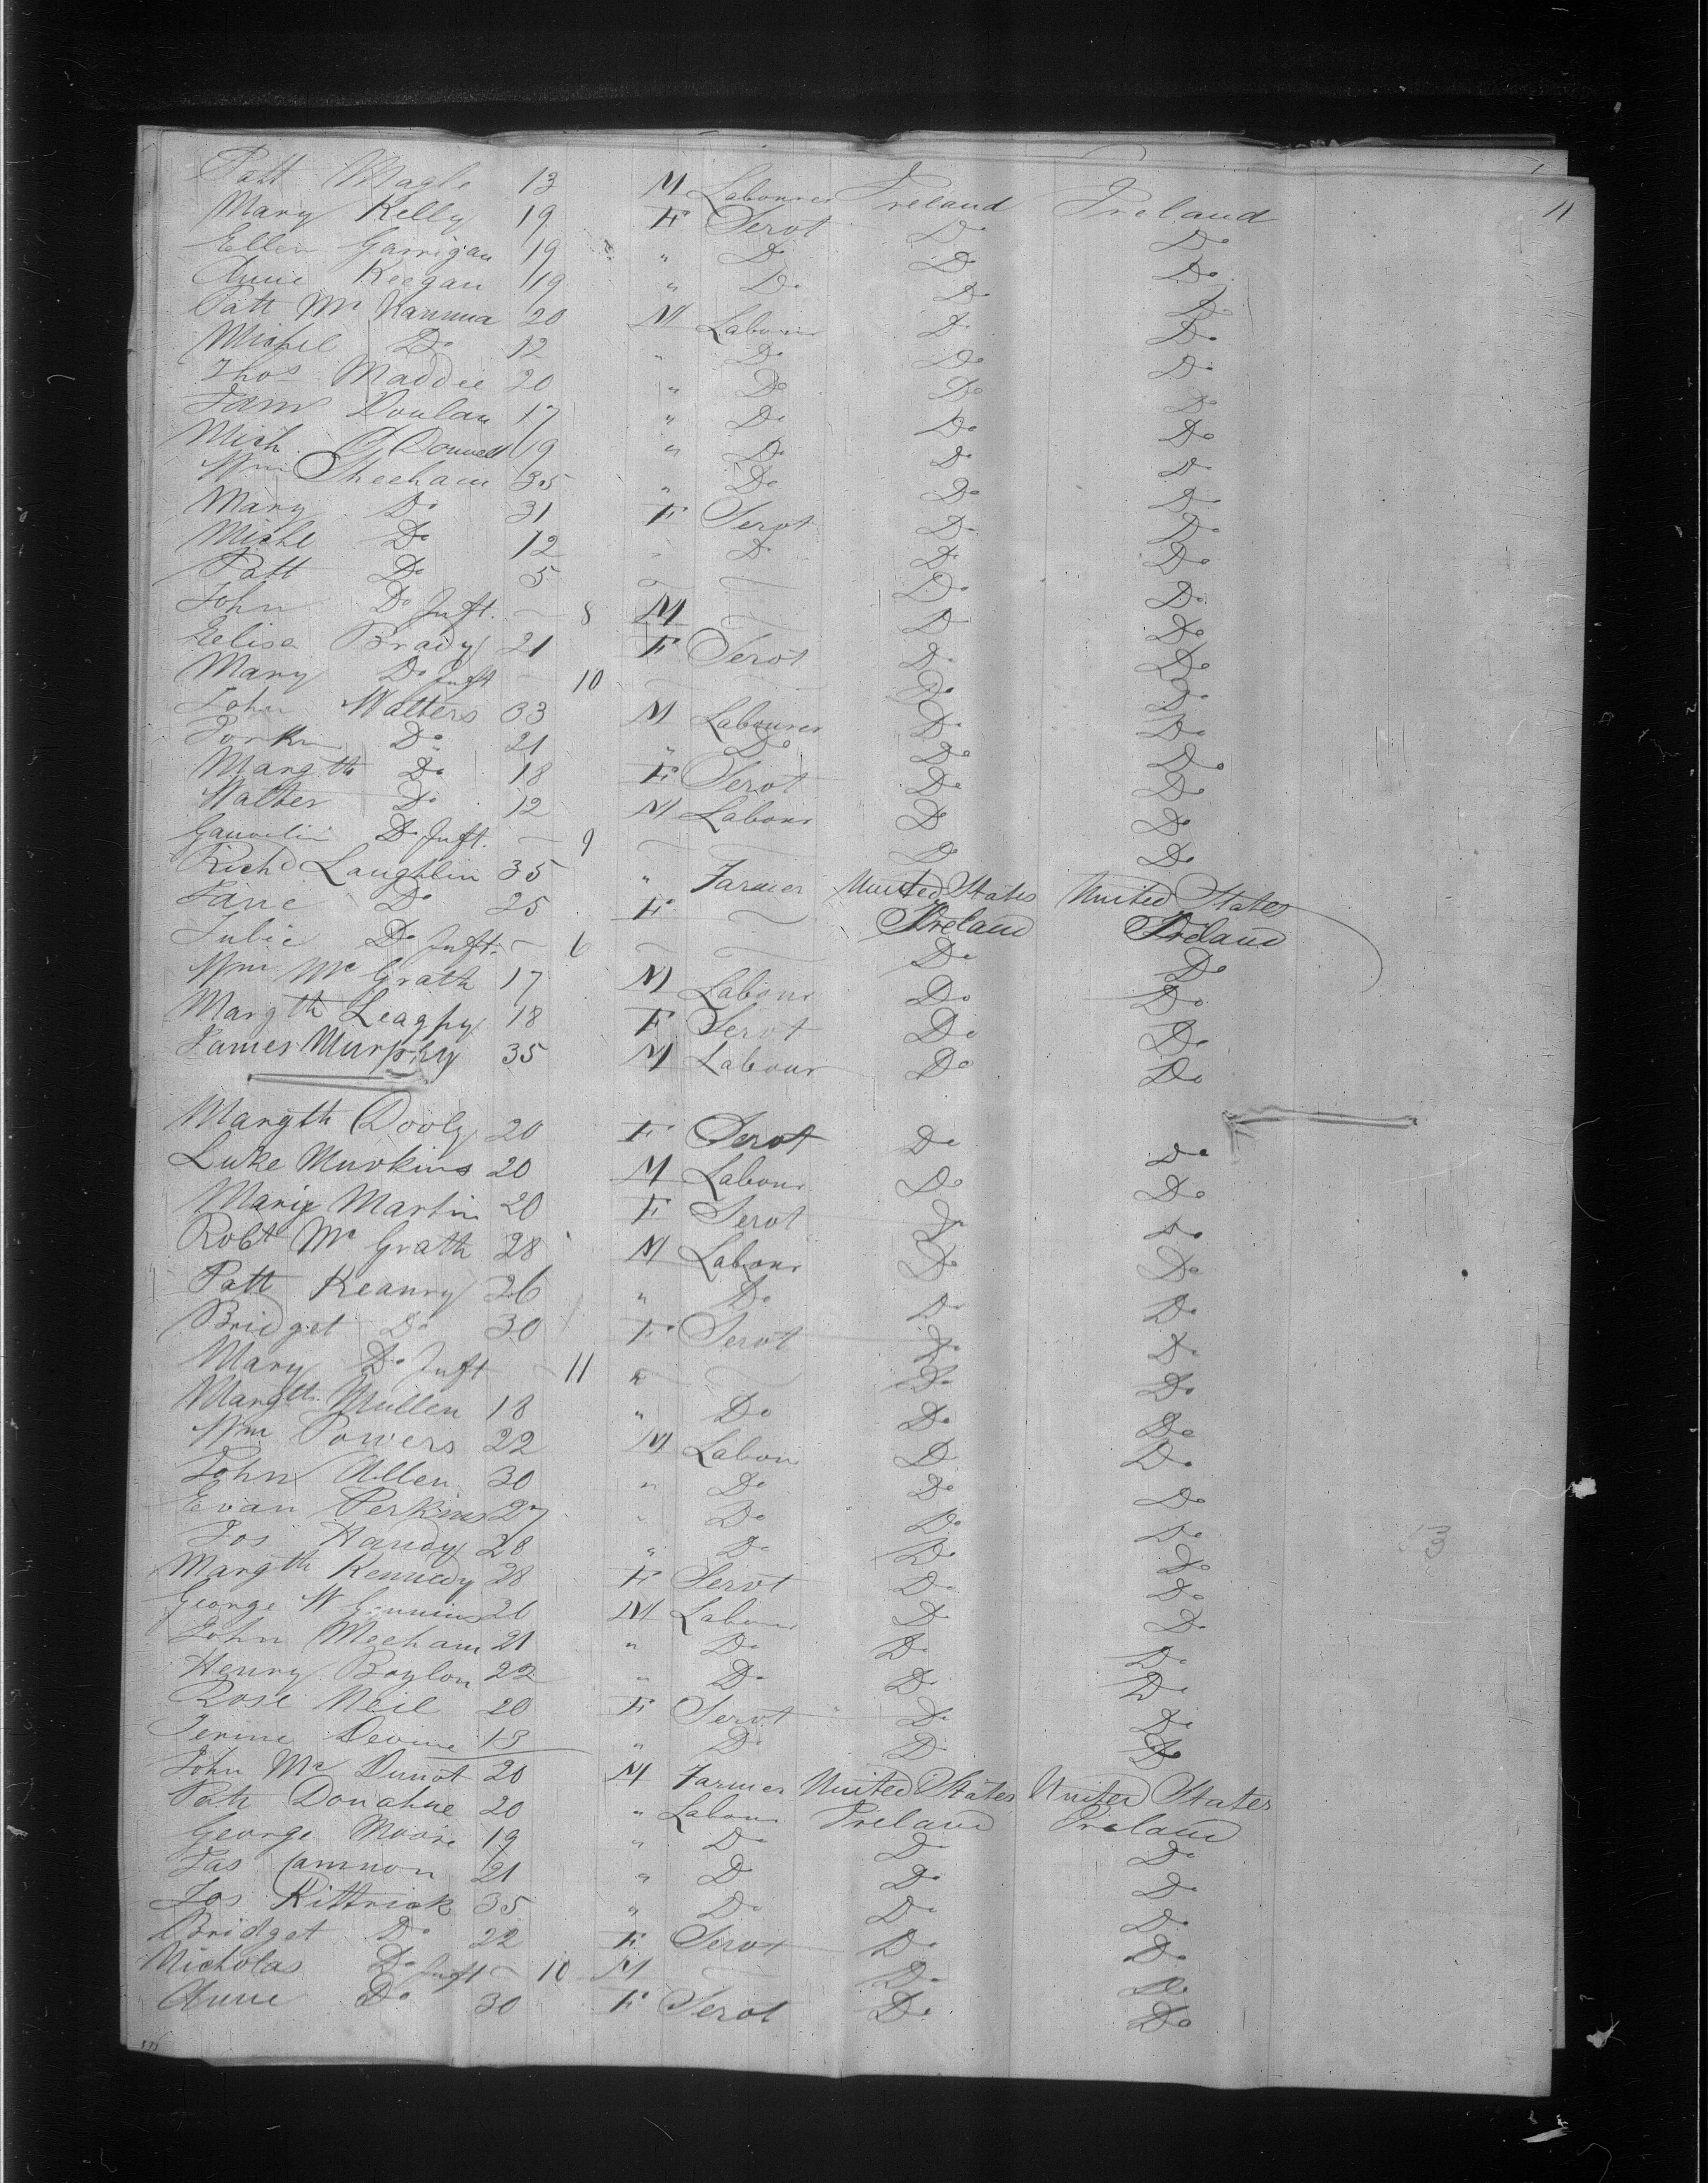 Patt Magle 13 M Labourer Ireland Ireland 11
Mary Kelly 19 F Servt Do Do
Ellen Garrigan 19 " Do Do Do
Anne Keegan 19 " Do Do Do
Patt Mc 20 M Labour Do Do
Michel Do 12 " Do Do Do
Thos Maddie 20 " Do Do Do
Jams Doulan 17 " Do Do Do
Mich O Donnell 19 " Do Do Do
Wm Sheeham 35 " Do Do Do
Mary Do 31 F Servt Do Do
Michl Do 12 " Do Do Do
Patt Do 5 Do Do
John Do Inft. 8 M Do Do
Eelisa Brady 21 F Servt Do Do
Mary Do Inft 10 Do Do
John Walters 33 M Labourer Do Do
Do 21 " Do Do Do
Margth Do 18 F Servt Do Do
Walter Do 12 M Labour Do Do
Do Inft. 9 Do Do
Richd Laughlin 35 " Farmer United States United States
Jane Do 25 F Ireland Ireland
Julie Do Inft. 6 Do Do
Wm Mc Grath 17 M Labour Do Do
Margth Leaghy 18 F Servt Do Do
James Murphy 35 M Labour Do Do
Margth Dooly 20 F Servt Do Do
Luke Murkins 20 M Labour Do Do
Marie Martin 20 F Servt Do Do
Robt Mc Grath 28 M Labour Do Do
Patt Keanry 26 " Do Do Do
Bridget Do 30 F Servt Do Do
Mary Do Inft 11 " Do Do
Margth Mullen 18 " Do Do Do
Wm Powers 22 M Labour Do Do
John Allen 30 " Do Do Do
Evan Perkins 27 " Do Do Do
Jos Handy 28 " Do Do Do
Margth Kennedy 28 F Servt Do Do
George W 26 M Labour Do Do
John Mecham 21 " Do Do Do
Henry Boylon 22 " Do Do Do
Rose Neil 20 F Servt Do Do
Devine 13 " Do Do Do
John Mc Dunot 20 M Farmer United States United States
Patt Donahue 20 " Labour Ireland Ireland
George Moore 19 " Do Do Do
Jas Camnon 21 " Do Do Do
Jos Kittrick 35 " Do Do Do
Bridget Do 22 F Servt Do Do
Nicholas Do Inft 10 M Do Do
Anne Do 30 F Servt Do Do